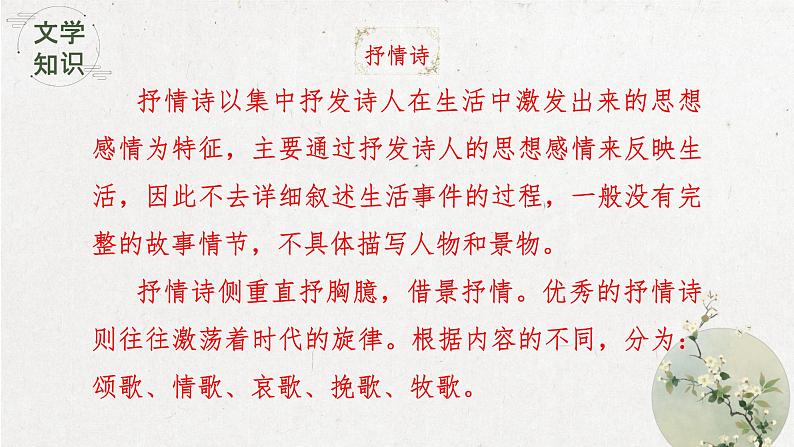 文学
知识
抒情诗
抒情诗以集中抒发诗人在生活中激发出来的思想
感情为特征，主要通过抒发诗人的思想感情来反映生
活，因此不去详细叙述生活事件的过程，一般没有完
整的故事情节，不具体描写人物和景物。
抒情诗侧重直抒胸臆，借景抒情。优秀的抒情诗
则往往激荡着时代的旋律。根据内容的不同，分为：
颂歌、情歌、哀歌、挽歌、牧歌。